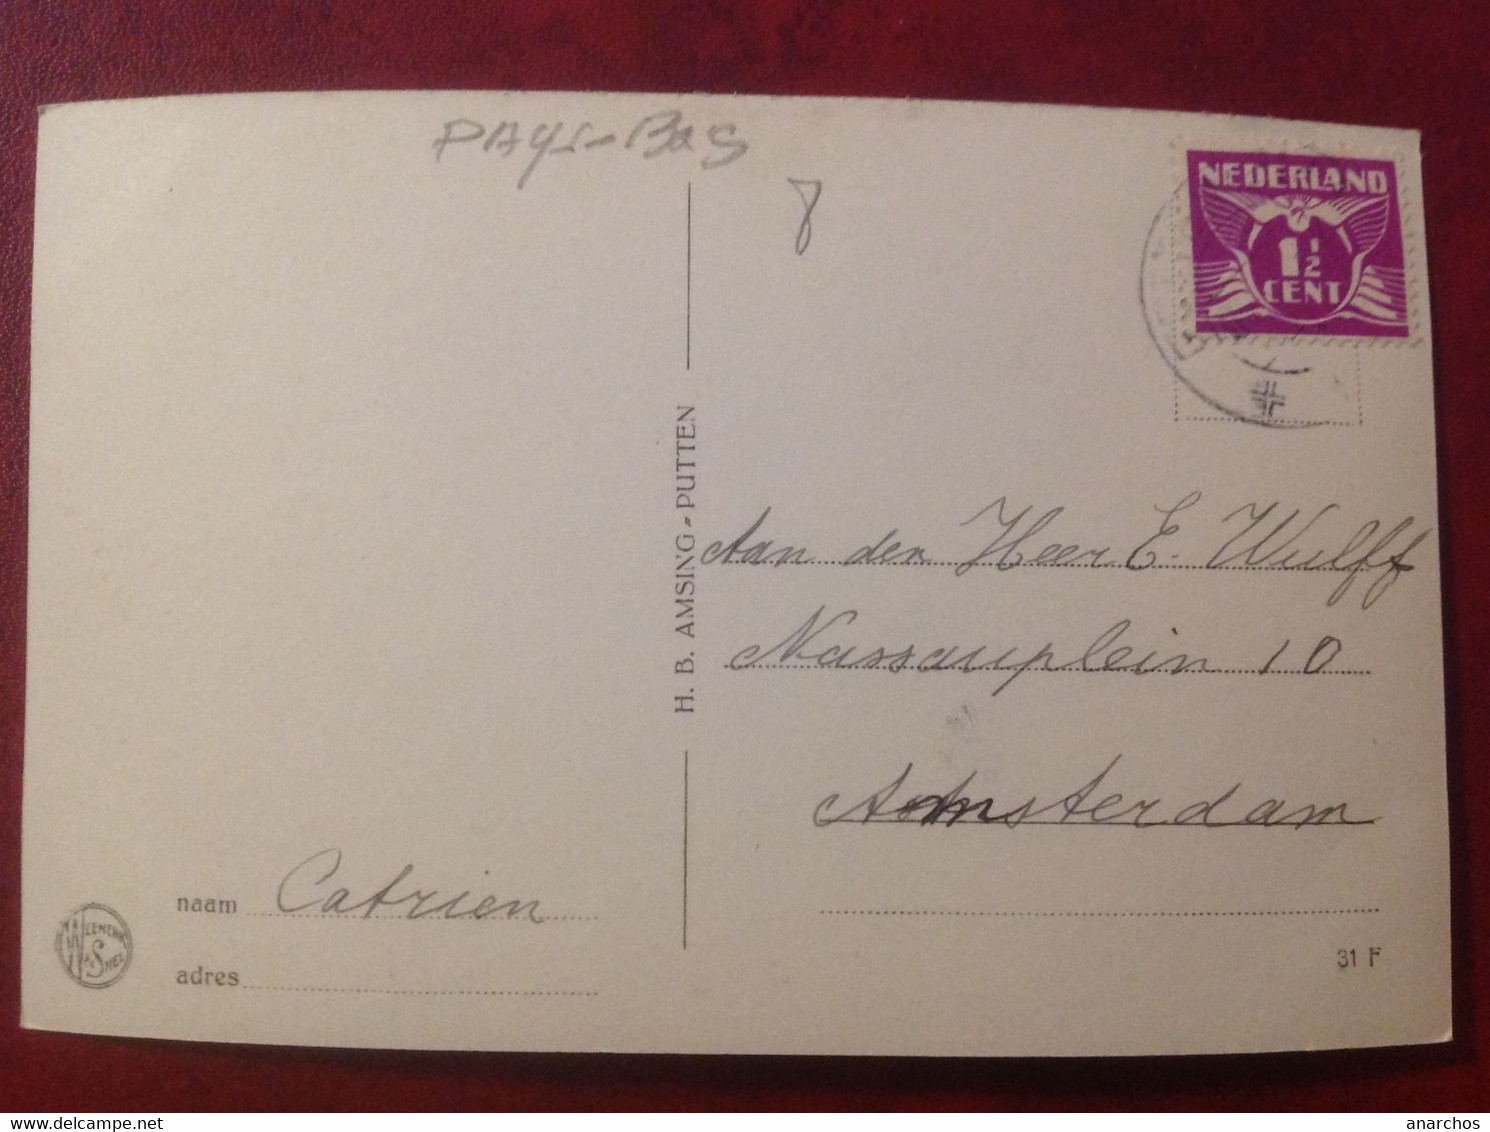 PAYS-BAS
8
NEDERLAND
1 1/2
CENT
H. B. AMSING - PUTTEN
Aan den Heer E. Wulff
Nassauplein 10
Amsterdam
naam Catrien
adres
WEENENK & SNEL
31 F
www.delcampe.net
anarchos